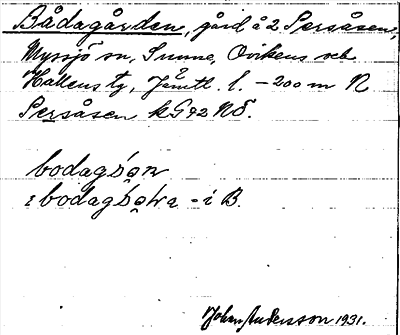 Bådagården, gård å 2 Persåsen,
Myssjö sn, Sunne, Ovikens och
Hallens tg, Jämtl. l. – 200 m N
Persåsen kG92NÖ.
bodagɔ́ɳ
i bodagɔ́ɳa - i B.
Johan Andersson 1931.